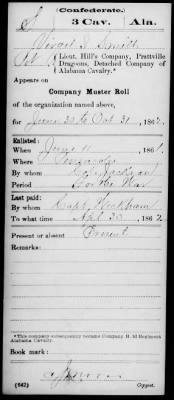 (Confederate.)
S 3 Cav. Ala.
Virgil S. Smith
Pvt Lieut. Hill's Company, Prattville
Dragoons, Detached Company of
Alabama Cavalry.*
Appears on
Company Muster Roll
of the organization named above,
for June 30 to Oct 31, 1862.
Enlisted:
When June 11, 1861.
Where Pensacola
By whom Col. Jackson
Period For the War
Last paid:
By whom Capt. Wickham
To what time Apl 30, 1862
Present or absent Present
Remarks:
*This company subsequently became Company H, 3d Regiment
Alabama Cavalry.
Book mark:
(642) Copyist.